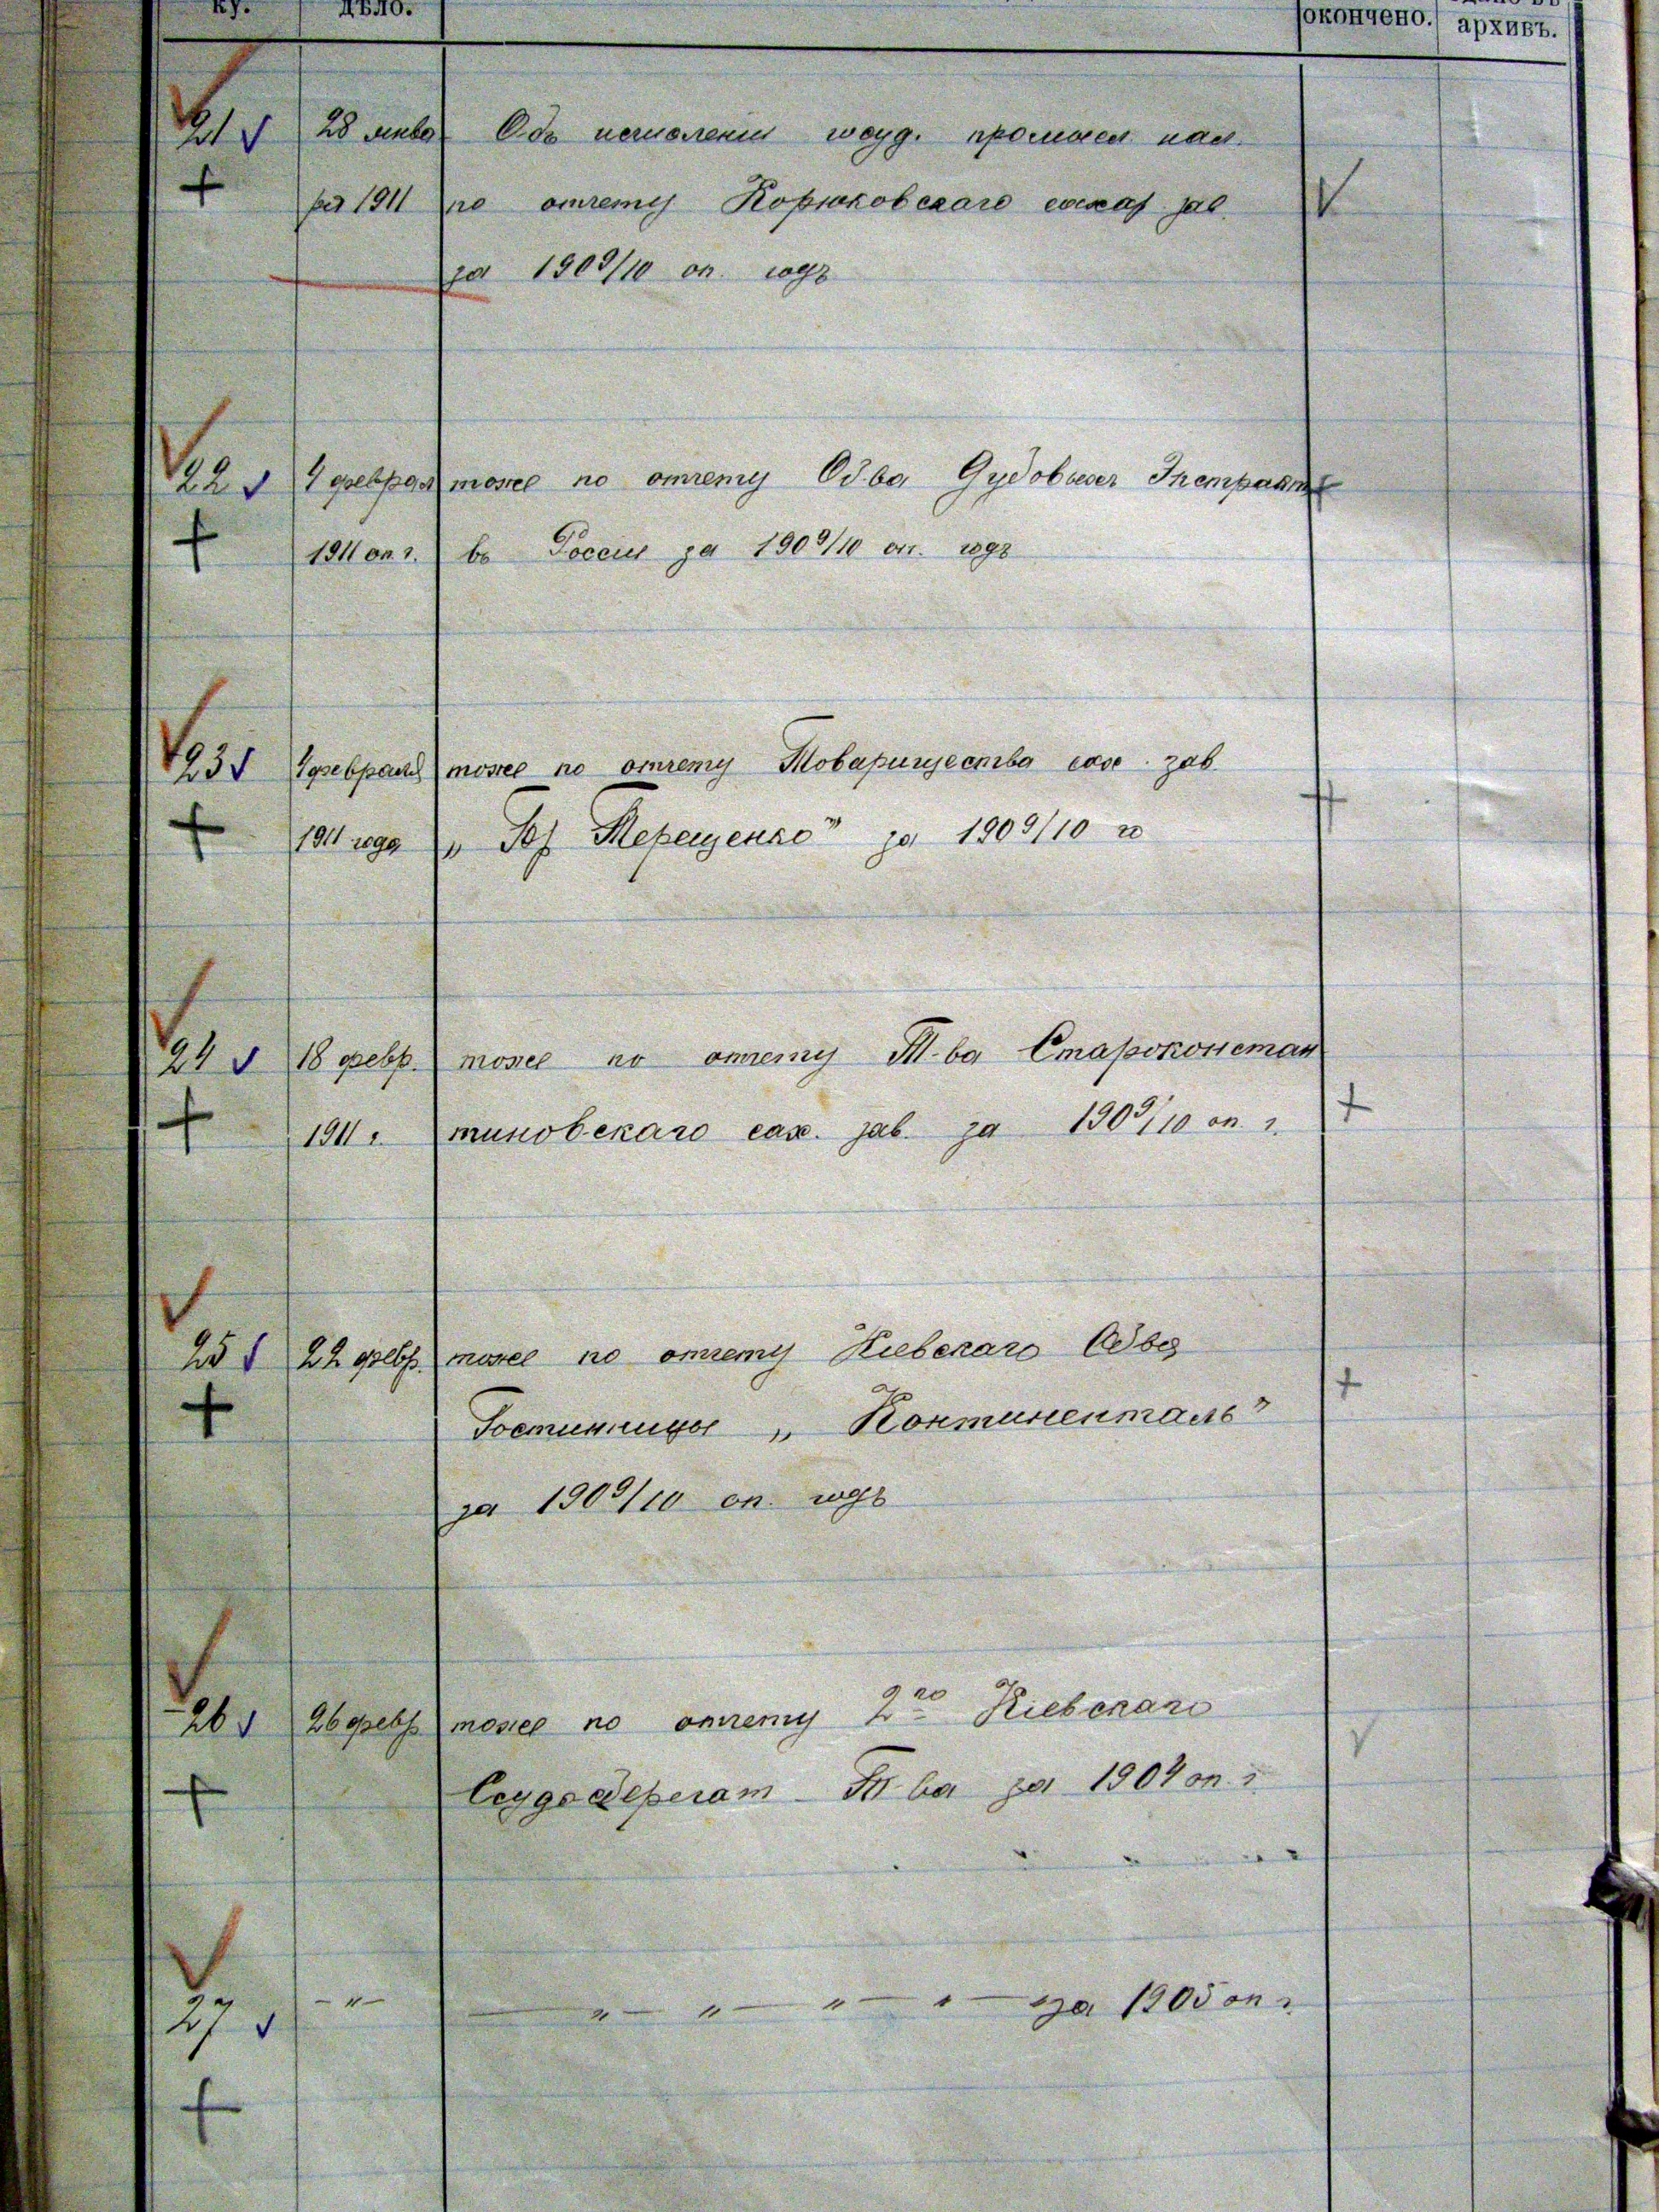 ку. дѣло. окончено. архивъ.
21 28 янва Объ исчисленіи госуд. промысл нал.
ря 1911 по отчету Корюковскаго сахар зав.
за 1909/10 оп. годъ
22 4 феврал тоже по отчету Об-ва Дубовыхъ Экстракт
1911 оп г. въ Россіи за 1909/10 оп. годъ
23 4 февраля тоже по отчету Товарищества сах. зав.
1911 года „ Бр Терещенко" за 1909/10 г
24 18 февр. тоже по отчету Т-ва Староконстан
1911 г. тиновскаго сах. зав. за 1909/10 оп. г.
25 22 февр. тоже по отчету Кіевскаго Об-ва
Гостинницы „ Континенталь"
за 1909/10 оп. годъ
26 26 февр тоже по отчету 2го Кіевскаго
Ссудосберегат Т-ва за 1904 оп. г.
27 -"- — " — " — " — " — " за 1905 оп г.